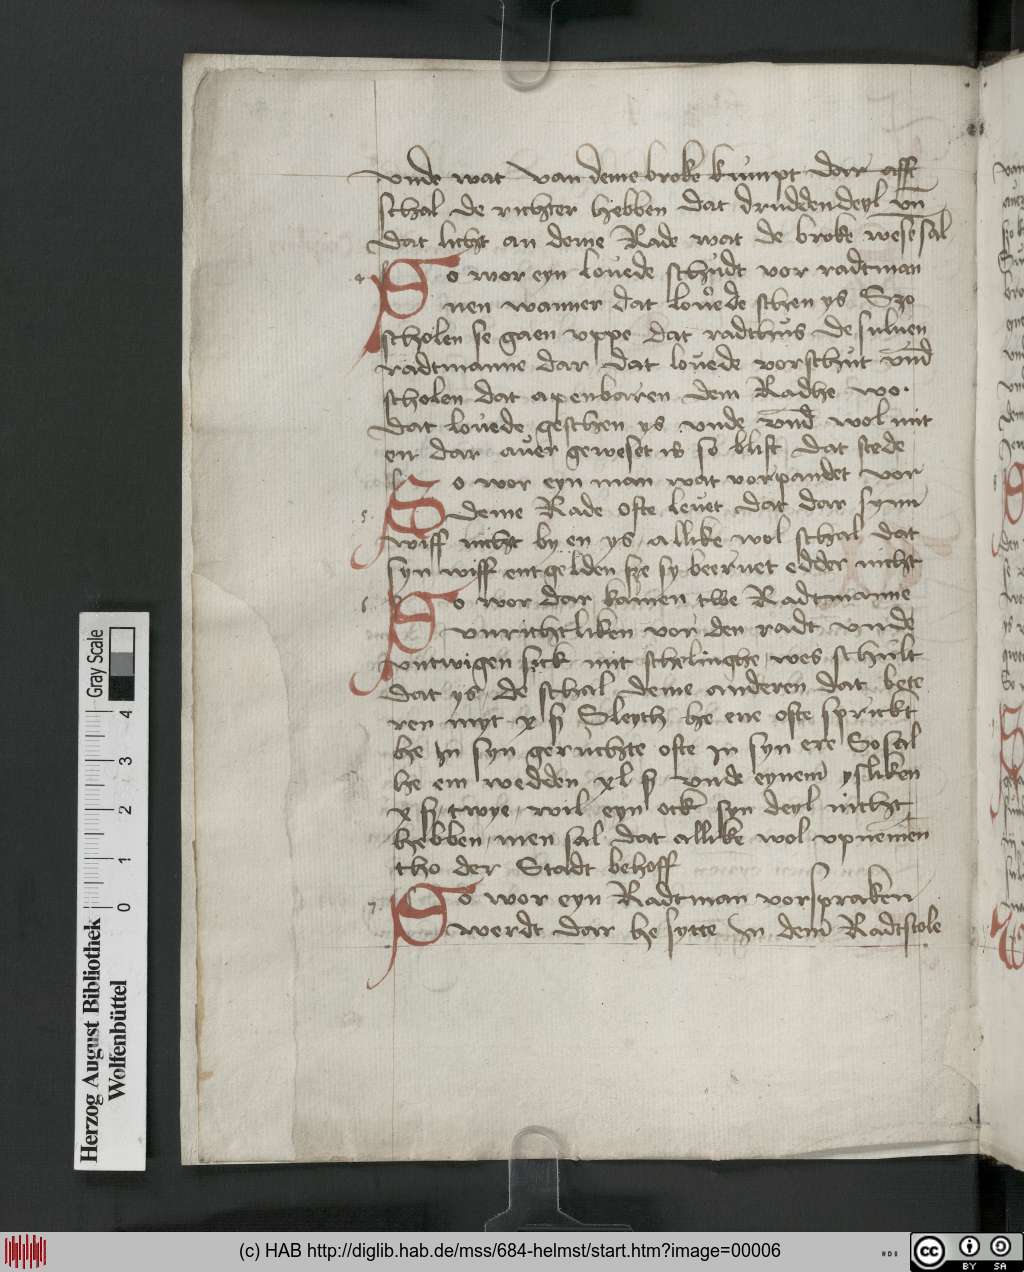 vnde wat van deme broke kumpt dar aff
schal de richter hebben dat druddendeyl vn̄
dat licht an deme Rade wat de broke wesen sal
4 So wor eyn louede schudt vor radtman
nen wanner dat louede schen ys Szo
scholen se gaen vppe dat radthus de suluen
radtmanne dar dat louede vorschut vnd
scholen dat apenbaren dem Radhe wo
dat louede geschen ys vnde vnd wol mit
en dar auer geweset is so blift dat stede
5 So wor eyn man wat vorpandet vor
deme Rade ofte leuet dat dar synn
wiff nicht by en ys allike wol schal dat
syn wiff entgelden sze sy beeruet edder nicht
6 So wor dar kamen twe Radtmanne
vnrichtliken vor den radt vnde
vntwigen sick mit schelinghe wes schult
dat ys de schal deme anderen dat bete
ren myt x ß Sleyth he ene ofte sprickt
he In syn geruchte ofte in syn ere So sal
he em wedden xl ß vnde eynem ysliken
x ß twye wil eyn ock syn deyl nicht
hebben men sal dat allike wol vpnemen
tho der Stadt behoff
7 So wor eyn Radtman vorspraken
werdt dar he sytte In dem Radtstole
Gray Scale
4 3 2 1 0
Herzog August Bibliothek
Wolfenbüttel
(c) HAB http://diglib.hab.de/mss/684-helmst/start.htm?image=00006
cc BY SA